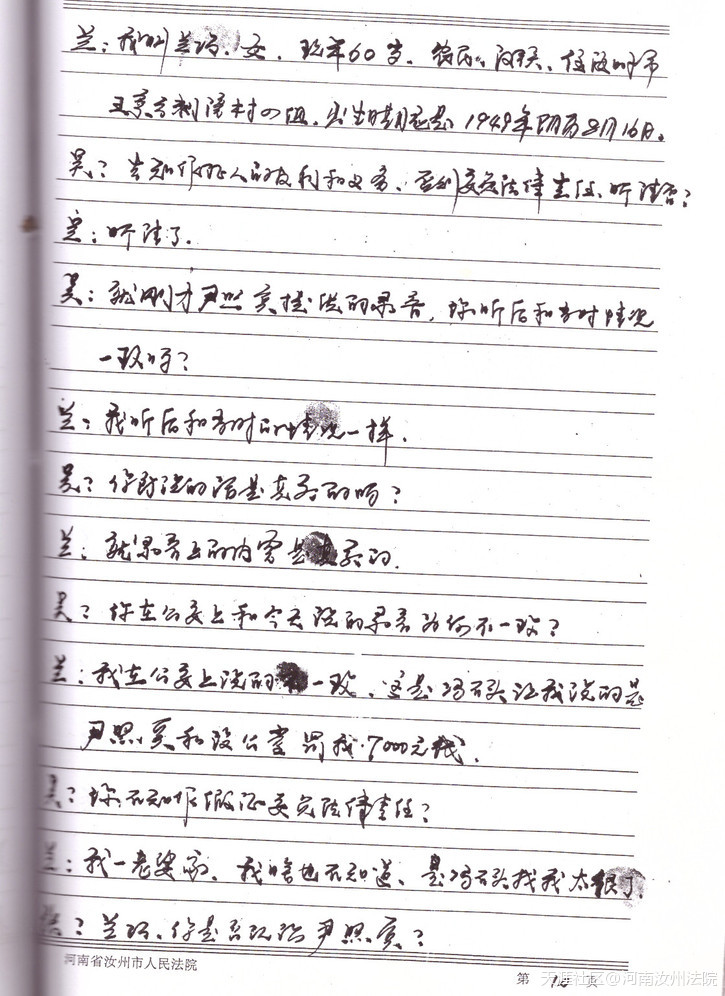 兰：我叫兰玲、女、现年60岁、农民、汉族、住汝州市
王寨乡 村四组、出生日期是1949年阴历2月16日。
吴？告知作证人的权利和义务、否则应负法律责任、听清否？
兰：听清了.
吴：就刚才尹照实提供的录音，你听后和当时情况
一致吗？
兰：我听后和当时的情况一样.
吴？你所说的话是真实的吗？
兰：就录音上的内容是真实的.
吴？你在公安上和今天说的录音为何不一致？
兰：我在公安上说的不一致、这是冯石头让我说的是
尹照实和段公堂罚我7000元钱.
吴？你不知作假证要负法律责任？
兰：我一老婆家、我啥也不知道、是冯石头找我太狠了.
吴？兰玲、你是否认识尹照实？
河南省汝州市人民法院
第 页
天涯社区@河南汝州法院